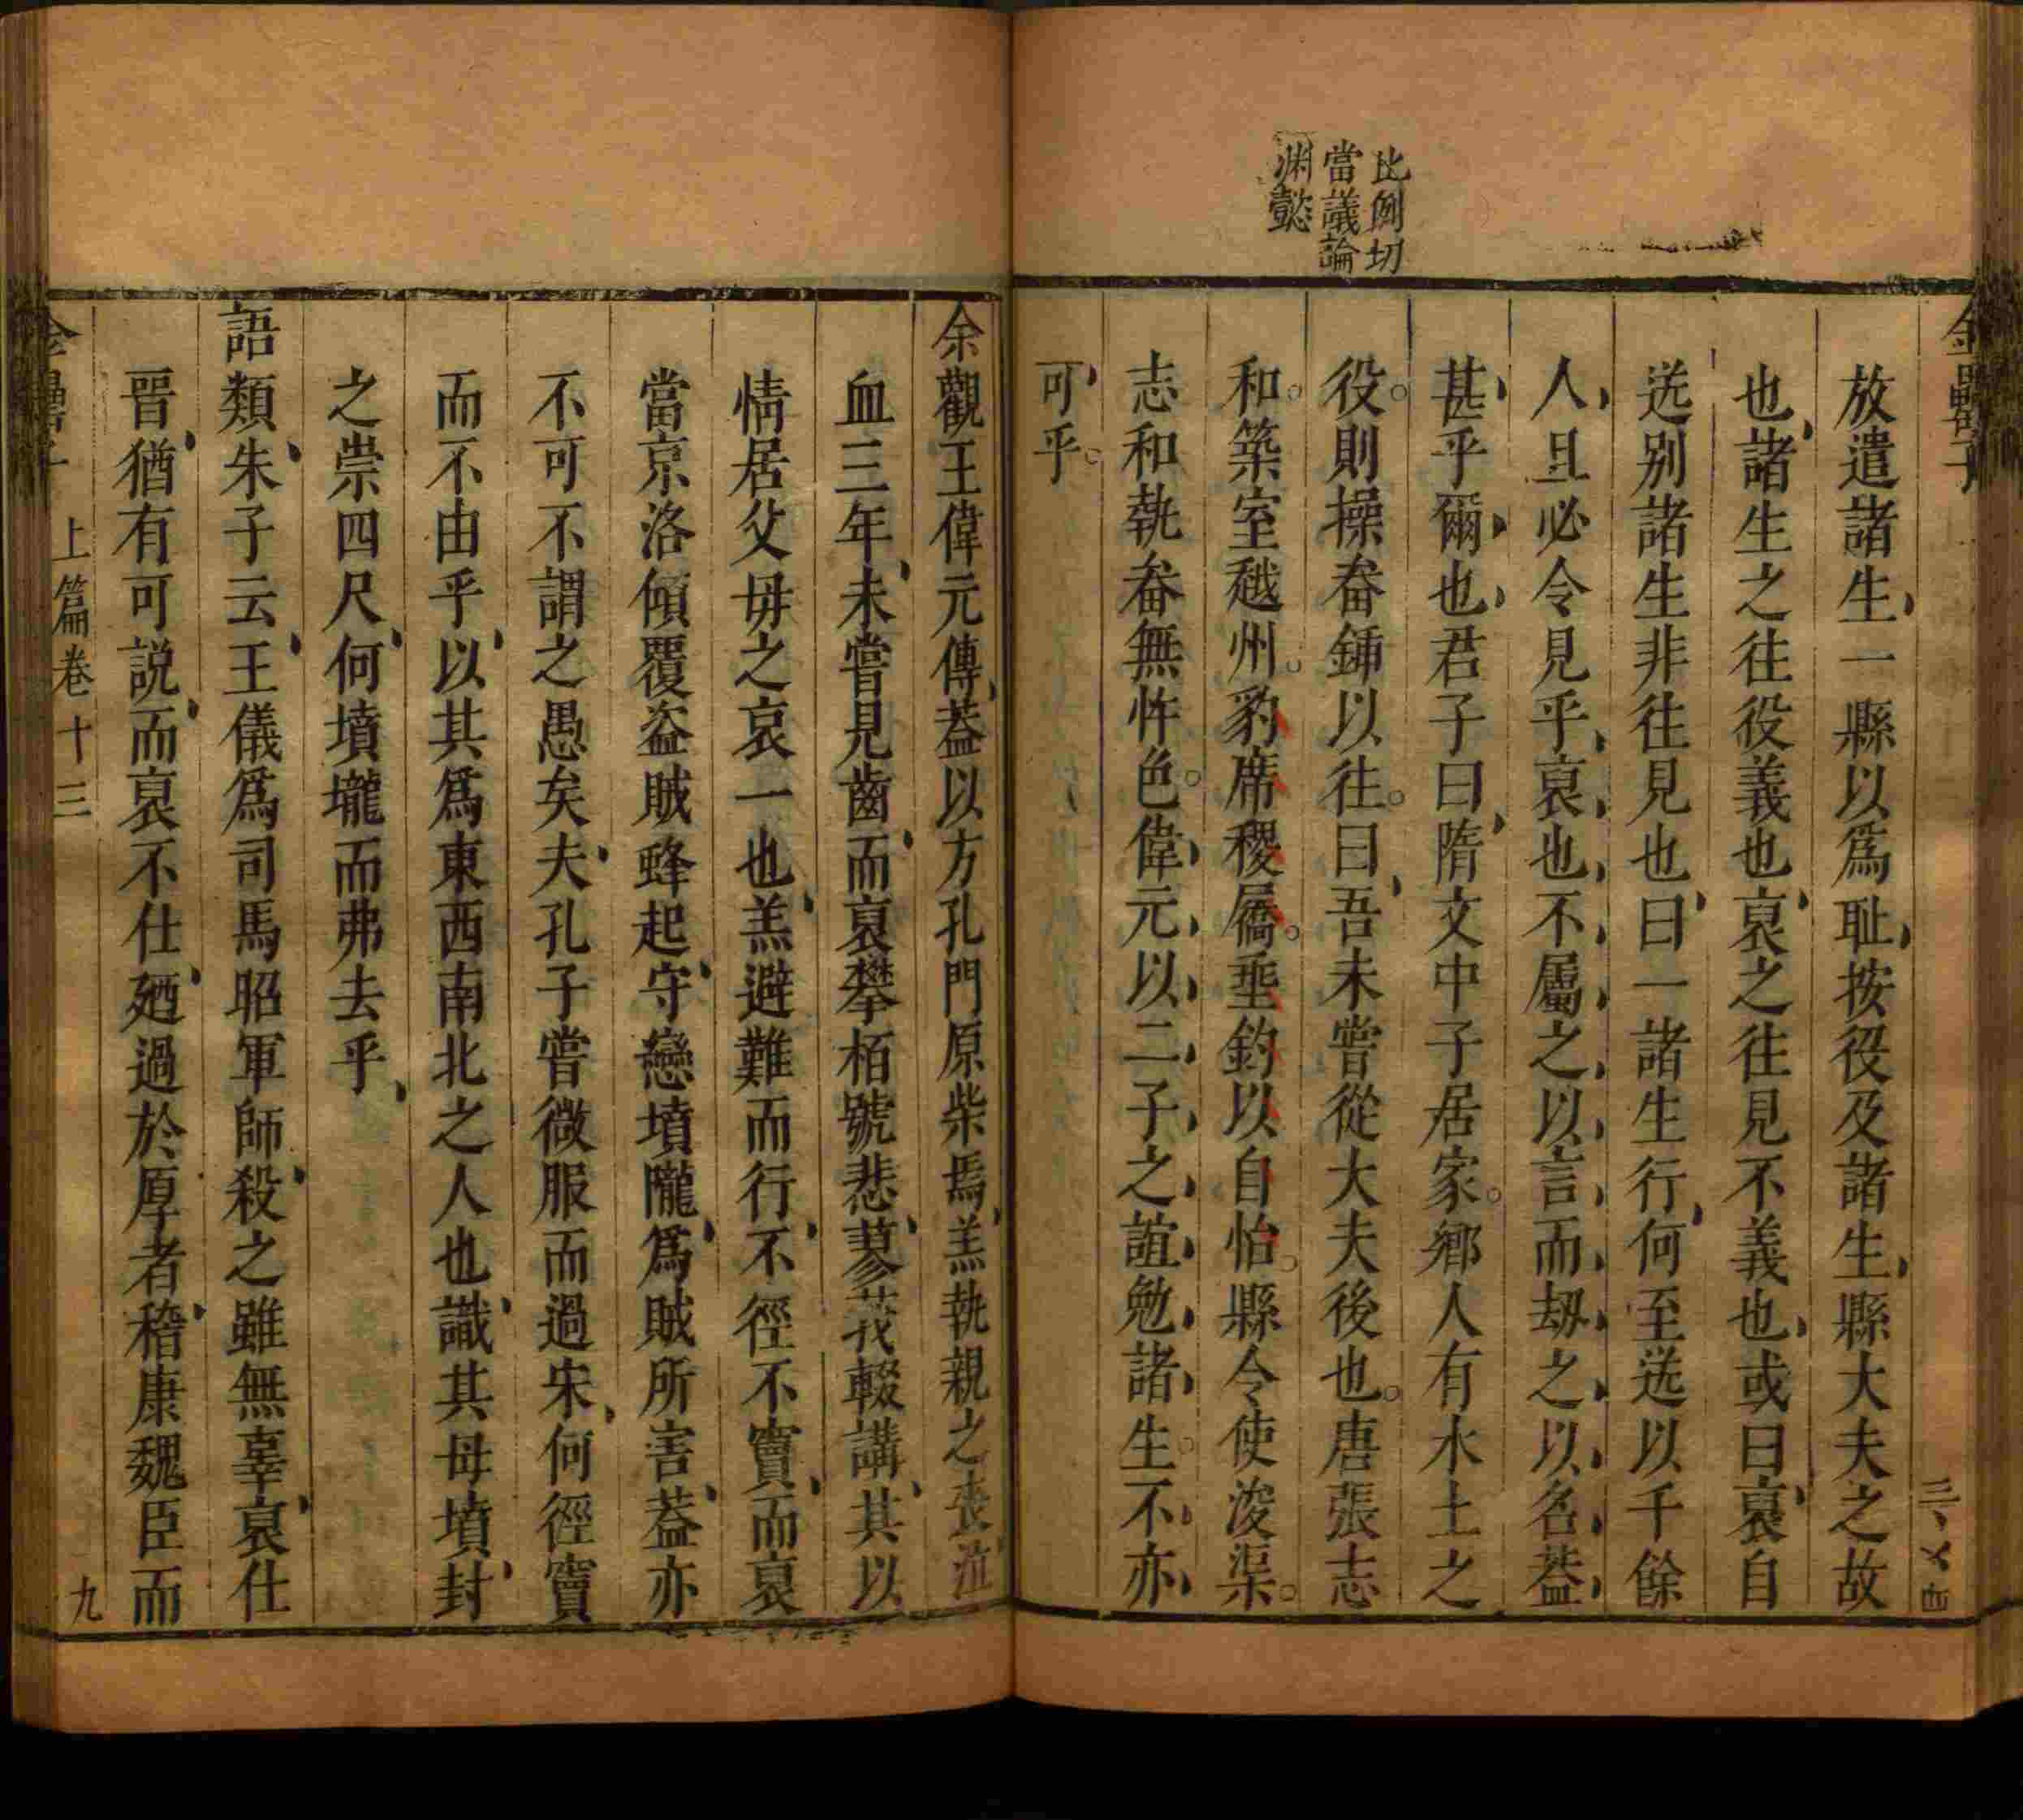 比例切
當議論
淵懿
金罍子
放遣諸生一縣以爲耻按役及諸生縣大夫之故
也諸生之往役義也裒之往見不義也或曰裒自
送别諸生非往見也曰一諸生行何至送以千餘
人且必令見乎裒也不屬之以言而刼之以名葢
甚乎爾也君子曰隋文中子居家鄉人有水土之
役則操畚鍤以往曰吾未嘗從大夫後也唐張志
和築室越州豹席稷屩垂釣以自怡縣令使浚渠
志和執畚無忤色偉元以二子之誼勉諸生不亦
可乎
余觀王偉元傳葢以方孔門原柴焉羔執親之喪泣
血三年未嘗見齒而裒攀栢號悲蓼莪輟講其以
情居父毋之哀一也羔避難而行不徑不竇而裒
當京洛傾覆盗賊蜂起守戀墳隴爲賊所害葢亦
不可不謂之愚矣夫孔子嘗微服而過宋何徑竇
而不由乎以其爲東西南北之人也識其母墳封
之崇四尺何墳壠而弗去乎
語類朱子云王儀爲司馬昭軍師殺之雖無辜裒仕
晉猶有可説而裒不仕廼過於厚者稽康魏臣而
上篇卷十三
九